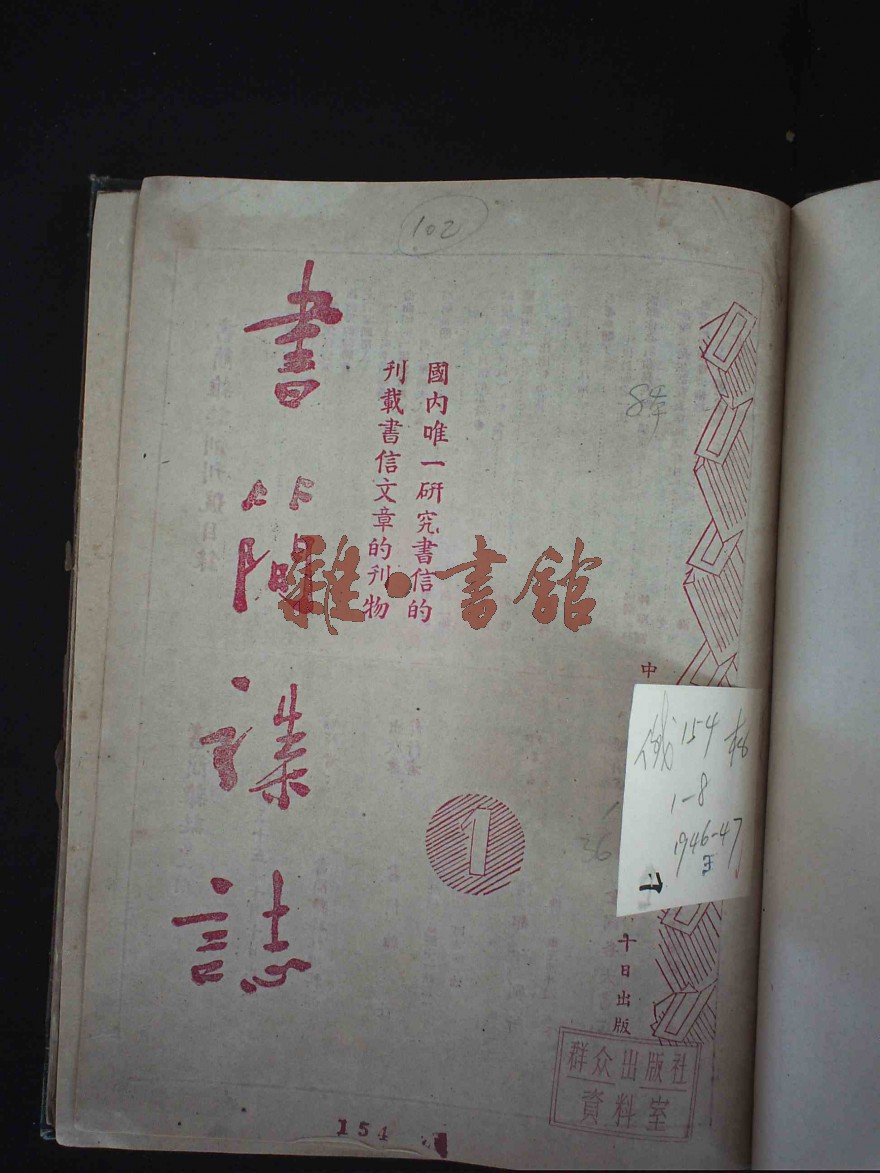 102
國內唯一研究書信的
刊載書信文章的刊物
書簡雜誌
8本
雜·書館
中
154
1-8
1946-47
36
1
十日出版
群众出版社
資料室
154